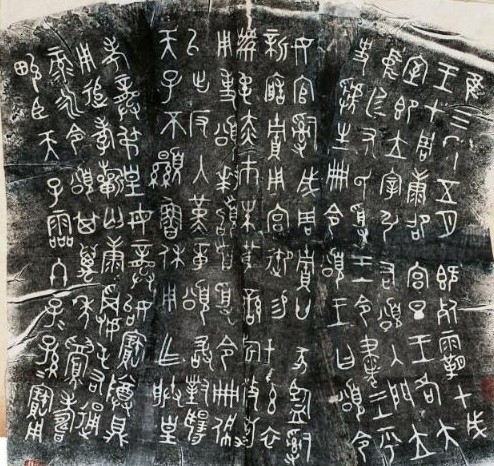 隹三年五月既死霸甲戌
王才周康卲宮旦王各大
室即立宰引右頌入門立中廷
尹氏受王令書王乎
史虢生冊令頌王曰頌令
女官𤔲成周賈廿家監𤔲
新造賈用宮御易女玄衣
黹屯赤巿朱黃鑾旂攸勒
用事頌拜稽首受令冊佩
以出反入堇章頌敢對揚
天子不顯魯休用乍朕皇
考龏弔皇母龏始寶尊鼎
用追孝祈匄康𩁹屯右通
彔永令頌其萬年眉壽
畯臣天子霝冬子子孫孫寶用